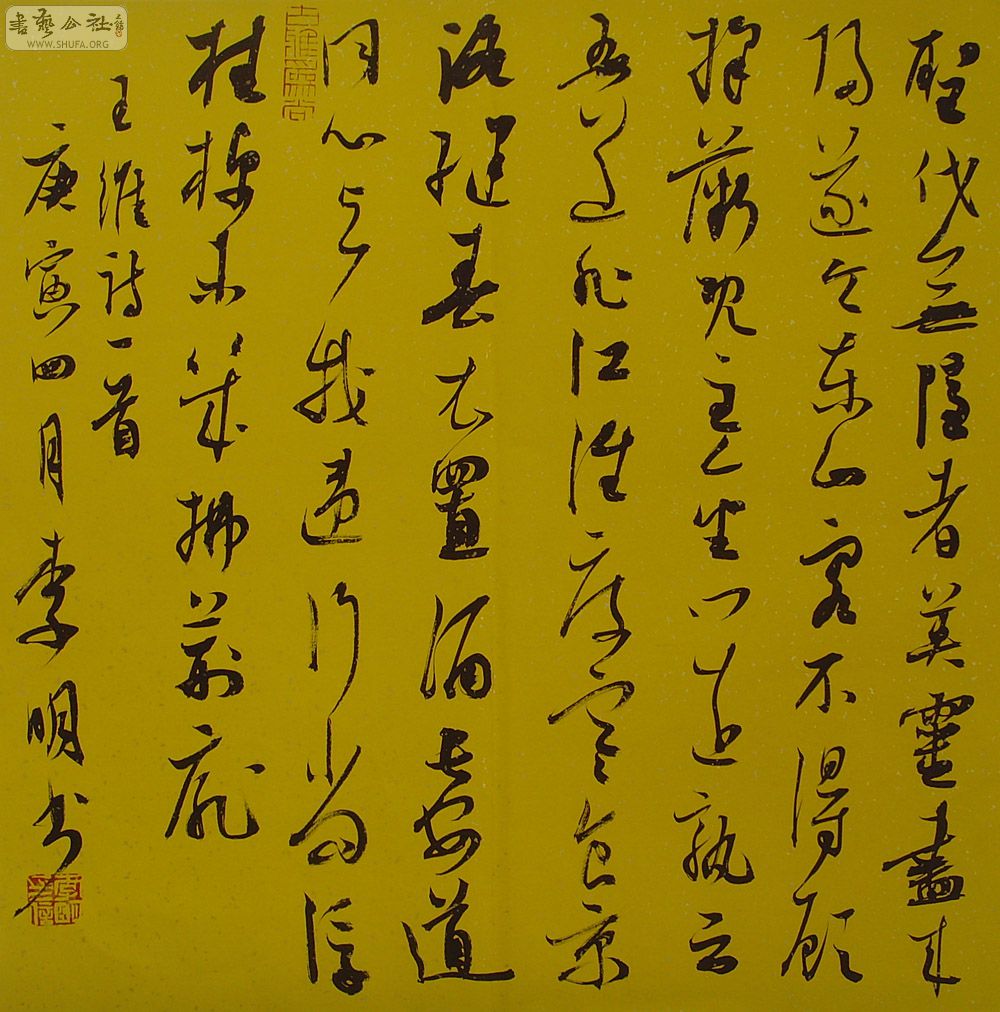 書藝公社
WWW.SHUFA.ORG
聖代無隱者英靈盡來
歸遂令東山客不得顧
採薇既至金門遠孰云
吾道非江淮度寒食京
洛縫春衣置酒長安道
同心与我違行當浮
桂棹未幾拂荊扉
王維詩一首
庚寅四月李明書